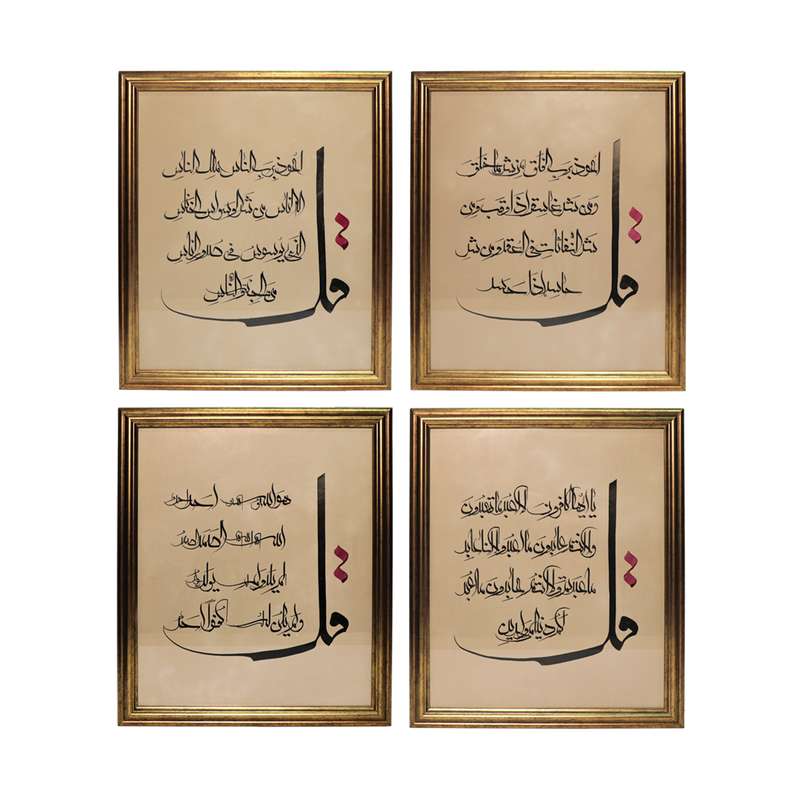 قل
اعوذ برب الفلق من شر ما خلق
ومن شر غاسق اذا وقب ومن
شر النفاثات في العقد ومن شر
حاسد اذا حسد
قل
اعوذ برب الناس ملك الناس
اله الناس من شر الوسواس الخناس
الذي يوسوس في صدور الناس
من الجنة والناس
قل
يا ايها الكافرون لا اعبد ما تعبدون
ولا انتم عابدون ما اعبد ولا انا عابد
ما عبدتم ولا انتم عابدون ما اعبد
لكم دينكم ولي دين
قل
هو الله احد
الله الصمد
لم يلد ولم يولد
ولم يكن له كفوا احد